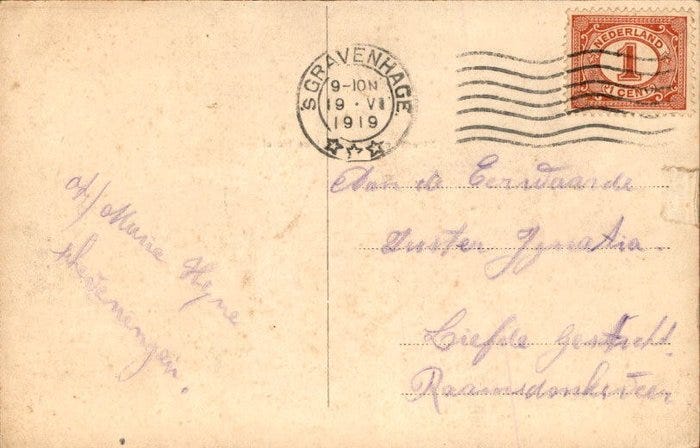 'S GRAVENHAGE
9-10N
19 · VI
1919
NEDERLAND
1
CENT
Aan de Eerwaarde
Zuster Ignatia.
Liefde Gesticht
Raamsdonkveer
A/ Marie